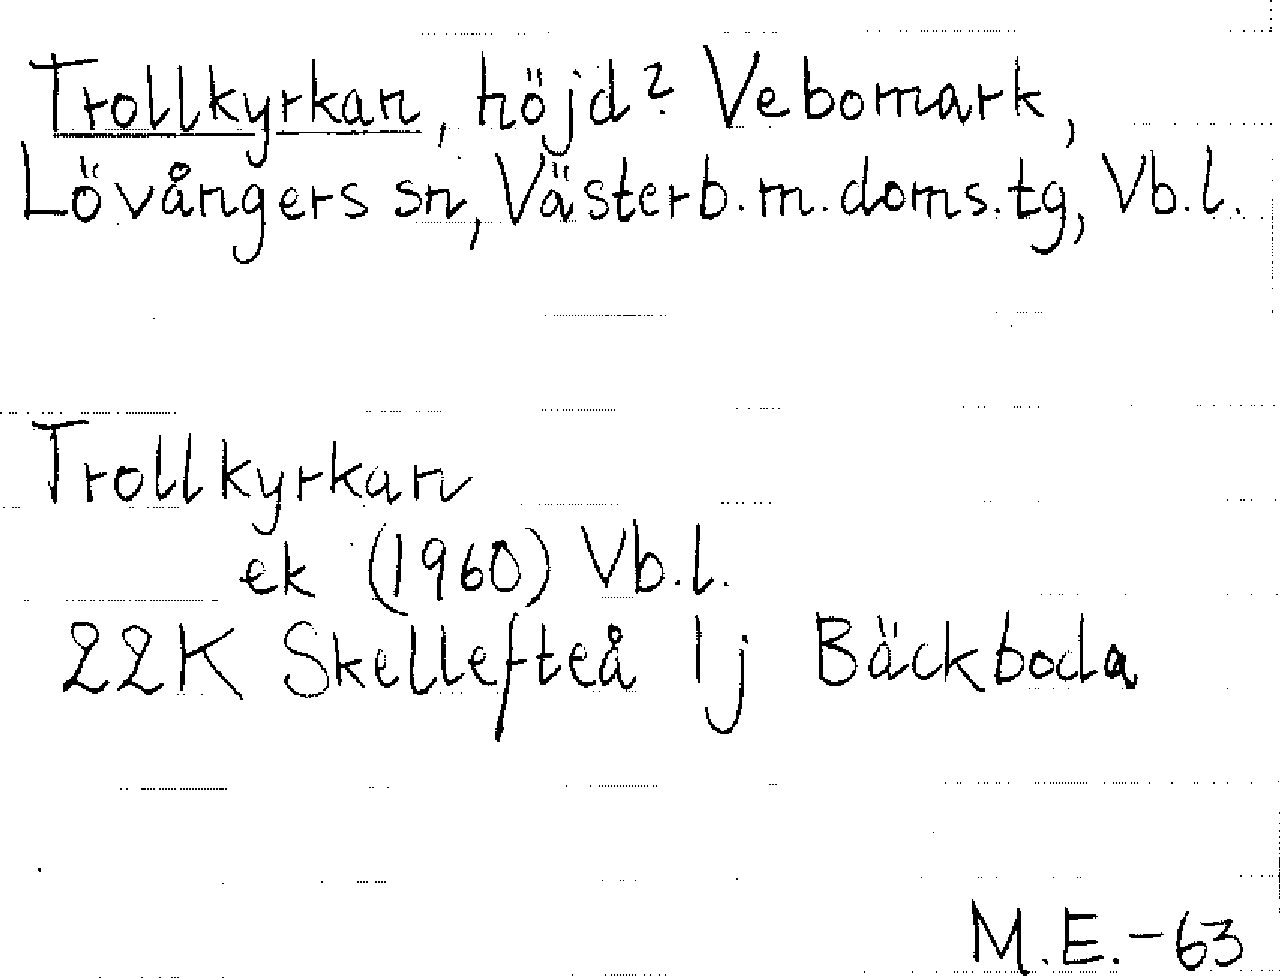 Trollkyrkan, höjd? Vebomark,
Lövångers sn, Västerb.m.doms.tg, Vb.l.
Trollkyrkan
ek (1960) Vb.l.
22K Skellefteå 1j Bäckboda
M.E.-63